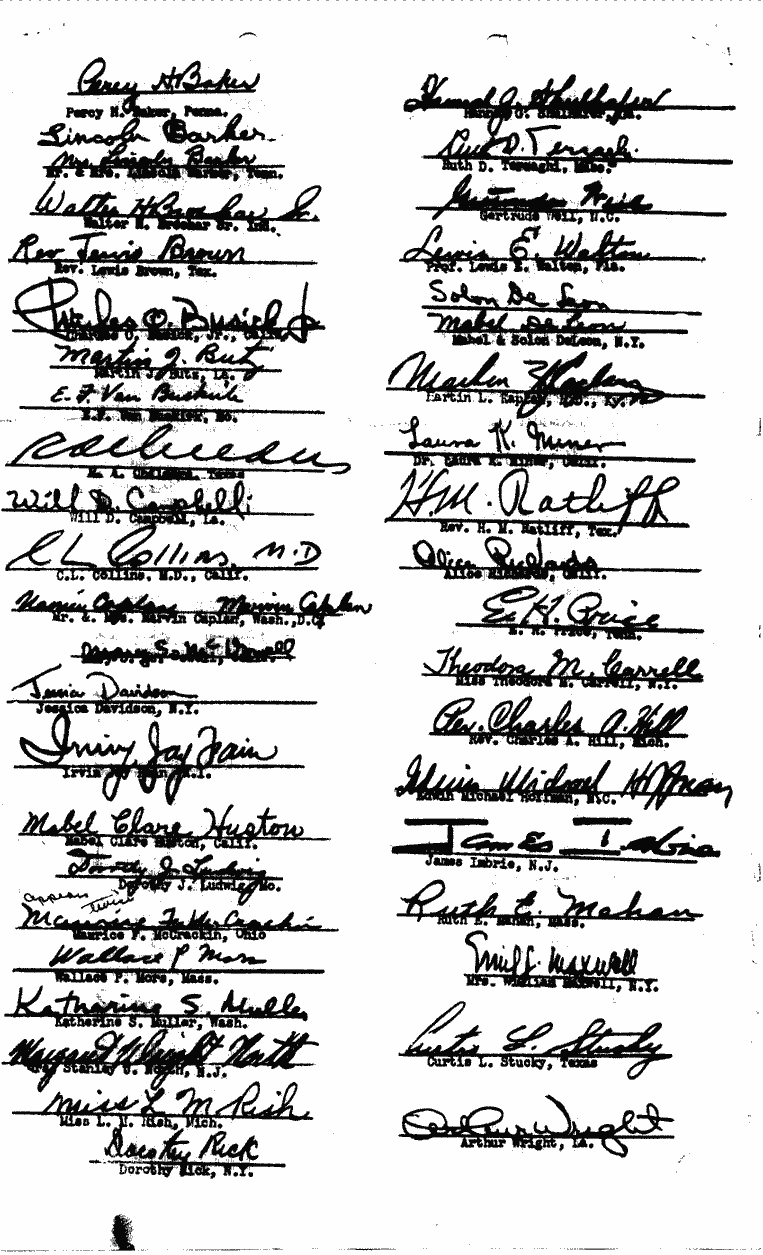 Percy H Baker
Percy H. Baker, Penna.
Lincoln Barker
Mrs. Lincoln Barker
Mr. & Mrs. Lincoln Barker, Tenn.
Walter H Broshar Sr.
Walter H. Broshar Sr. Ind.
Rev Lewis Brown
Rev. Lewis Brown, Tex.
Charles O. Busick Jr
Charles O. Busick, Jr., Calif.
Martin J. Butz
Martin J. Butz, La.
E. F. Van Buskirk
E.F. Van Buskirk, Mo.
R. A. Texas
Will D. Campbell
Will D. Campbell, La.
C L Collins, M.D
C.L. Collins, M.D., Calif.
Marvin Caplan
Mr. & Mrs. Marvin Caplan, Wash.,D.C.
Jessica Davidson
Jessica Davidson, N.Y.
Irving Jay Fain
Irvin Jay Fain R.I.
Mabel Clare Huston
Mabel Clare Huston, Calif.
Dorothy J. Ludwig
Dorothy J. Ludwig, Mo.
appears twice
Maurice F. McCrackin
Maurice F. McCrackin, Ohio
Wallace P Mors
Wallace P. Mors, Mass.
Katharine S. Muller
Katherine S. Muller, Wash.
Margaret Wright North
Stanley U. North, N.J.
Miss L M Rish
Miss L. M. Rish, Mich.
Dorothy Rick
Dorothy Rick, N.Y.
Ruth D. Terzaghi
Ruth D. Terzaghi, Mass.
Gertrude Weil
Gertrude Weil, N.C.
Lewis E. Walton
Prof. Lewis E. Walton, Fla.
Solon De Leon
Mabel De Leon
Mabel & Solon DeLeon, N.Y.
Martin L. Kaplan, M.D., Ky.
Laura K. Miner
Dr. Laura K. Miner,
H.M. Ratliff
Rev. H. M. Ratliff, Tex.
Alice Richards
Alice Richards, Calif.
E. H. Price
E. H. Price, Tenn.
Theodora M. Carrell
Miss Theodora M. Carrell, N.Y.
Rev. Charles A. Hill
Rev. Charles A. Hill, Mich.
Edwin Michael Hoffman
Edwin Michael Hoffman, N.C.
James Imbrie
James Imbrie, N.J.
Ruth E. Mahan
Ruth E. Mahan, Mass.
Maxwell
Mrs. William Maxwell, N.Y.
Curtis L. Stucky
Curtis L. Stucky, Texas
Arthur Wright
Arthur Wright, La.